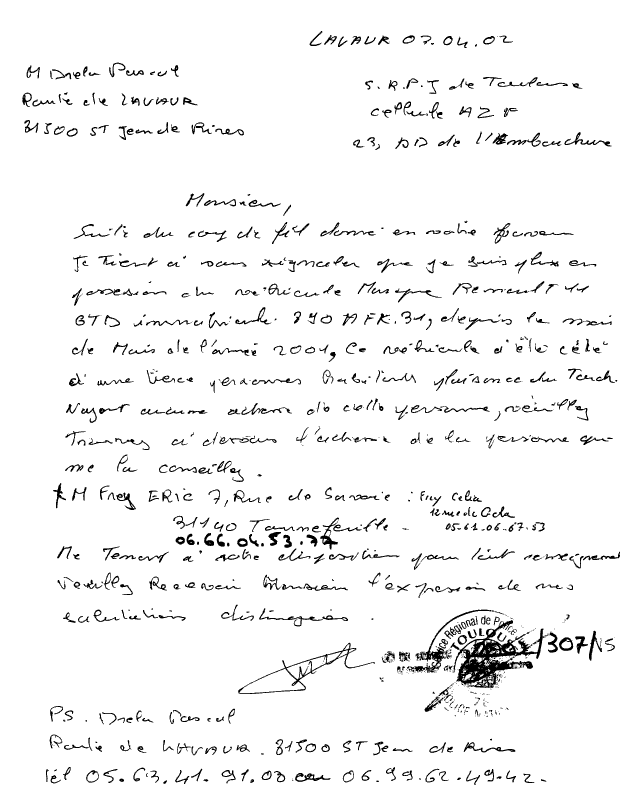 LAVAUR 07.04.02
M Drela Pascal
Route de LAVAUR
31500 ST Jean de Rives
S.R.P.J de Toulouse
cellule AZF
23, BD de l'Embouchure
Monsieur,
Suite du coup de fil donné en votre faveur
Je tient a vous signaler que je suis plus en
possesion du vehicule Marque Renault 11
GTD immatricule 890 AFK.31, depuis le mois
de Mais de l'année 2001, Ce vehicule d'éte cédé
d'une tierce personnes habitants plaisance du Touch.
N'ayant aucune adresse de cette personne, veuillez
Trouvez ci desous l'adresse de la personne qui
me la conseillez.
M Frey ERIC 7, Rue de Savoie : Frey Celia
12 rue de
31140 Tournefeuille - 05-61.06.67.53
06.66.04.53.77
Me Tenant a votre disposition pour tout renseignement
Veuillez Recevoir Monsieur l'expresion de mes
salutations distinguees.
Service Régional de Police
TOULOUSE
/307/NS
POLICE
PS. Drela Pascal
Route de LAVAUR. 31500 ST Jean de Rives
tél 05.63.41.91.08 ou 06.99.62.49.42.